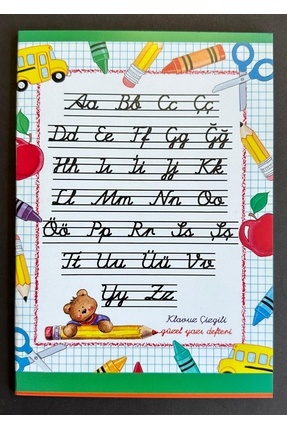 Aa Bb Cc Çç
Dd Ee Ff Gg Ğğ
Hh Iı İi Jj Kk
Ll Mm Nn Oo
Öö Pp Rr Ss Şş
Tt Uu Üü Vv
Yy Zz
Klavuz Çizgili
güzel yazı defteri